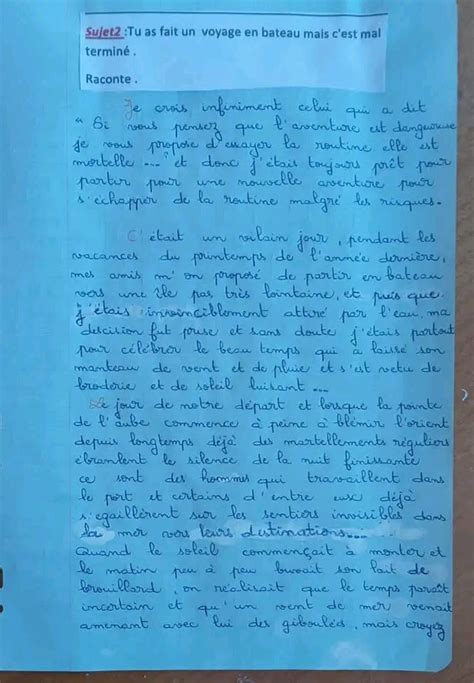 Sujet2 :Tu as fait un voyage en bateau mais c'est mal
terminé .
Raconte .
Je crois infiniment celui qui a dit
" Si vous pensez que l'aventure est dangureuse
je vous propose d'essayer la routine elle est
mortelle ... " et donc j'étais toujours prêt pour
partir pour une nouvelle aventure pour
s'échapper de la routine malgré les risques.
C'était un vilain jour, pendant les
vacances du printemps de l'année dernière,
mes amis m'on proposé de partir en bateau
vers une île pas très lointaine, et puis que
j'étais invinciblement attiré par l'eau, ma
descision fut prise et sans doute j'étais partout
pour célébrer le beau temps qui a laissé son
manteau de vent et de pluie et s'est vetu de
broderie et de soleil luisant ...
Le jour de notre départ et lorsque la pointe
de l'aube commence à peine à blêmir l'orient
depuis longtemps déjà des martellements réguliers
ébranlent le silence de la nuit finissante
ce sont des hommes qui travaillent dans
le port et certains d'entre eux déjà
s'egaillèrent sur les sentiers invisibles dans
la mer vers leurs distinations....
Quand le soleil commençait à monter et
le matin peu à peu buvait son lait de
brouillard, on réalisait que le temps paraît
incertain et qu'un vent de mer venait
amenant avec lui des giboulées, mais croyez